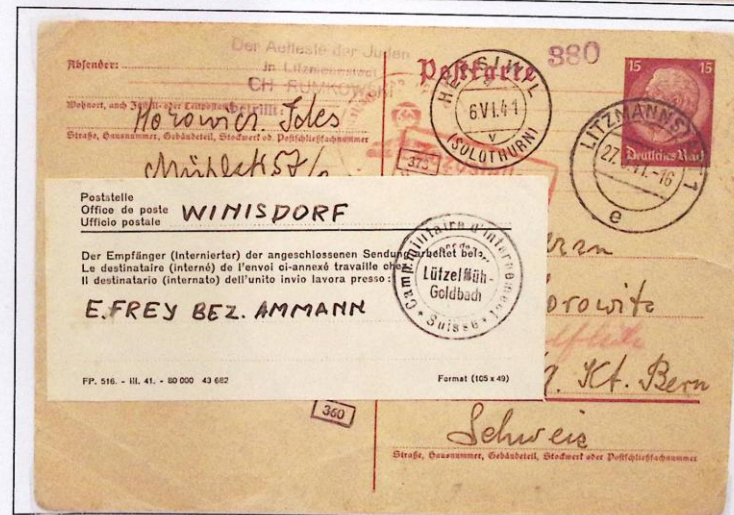 Der Aelteste der Juden
in Litzmannstadt
CH. RUMKOWSKI
Betrifft:
380
Absender:
Postkarte
15 15
Deutsches Reich
Wohnort, auch Zustell- oder Leitpostamt
Horowicz. Ides
Straße, Hausnummer, Gebäudeteil, Stockwerk od. Postschließfachnummer
Mühlg. 57/
6.VI.41
V
(SOLOTHURN)
LITZMANNST 1
27. 41.-16
e
373
Poststelle
Office de poste
Ufficio postale
WINISDORF
Der Empfänger (Internierter) der angeschlossenen Sendung arbeitet bei:
Le destinataire (interné) de l'envoi ci-annexé travaille chez
Il destinatario (internato) dell'unito invio lavora presso:
E. FREY BEZ. AMMANN
Camp militaire d'internement
Lützelflüh-
Goldbach
Suisse
FP. 516. - III. 41. - 80 000 43 682
Format (105 x 49)
orowitz
Kt. Bern
Schweiz
360
Straße, Hausnummer, Gebäudeteil, Stockwerk oder Postschließfachnummer